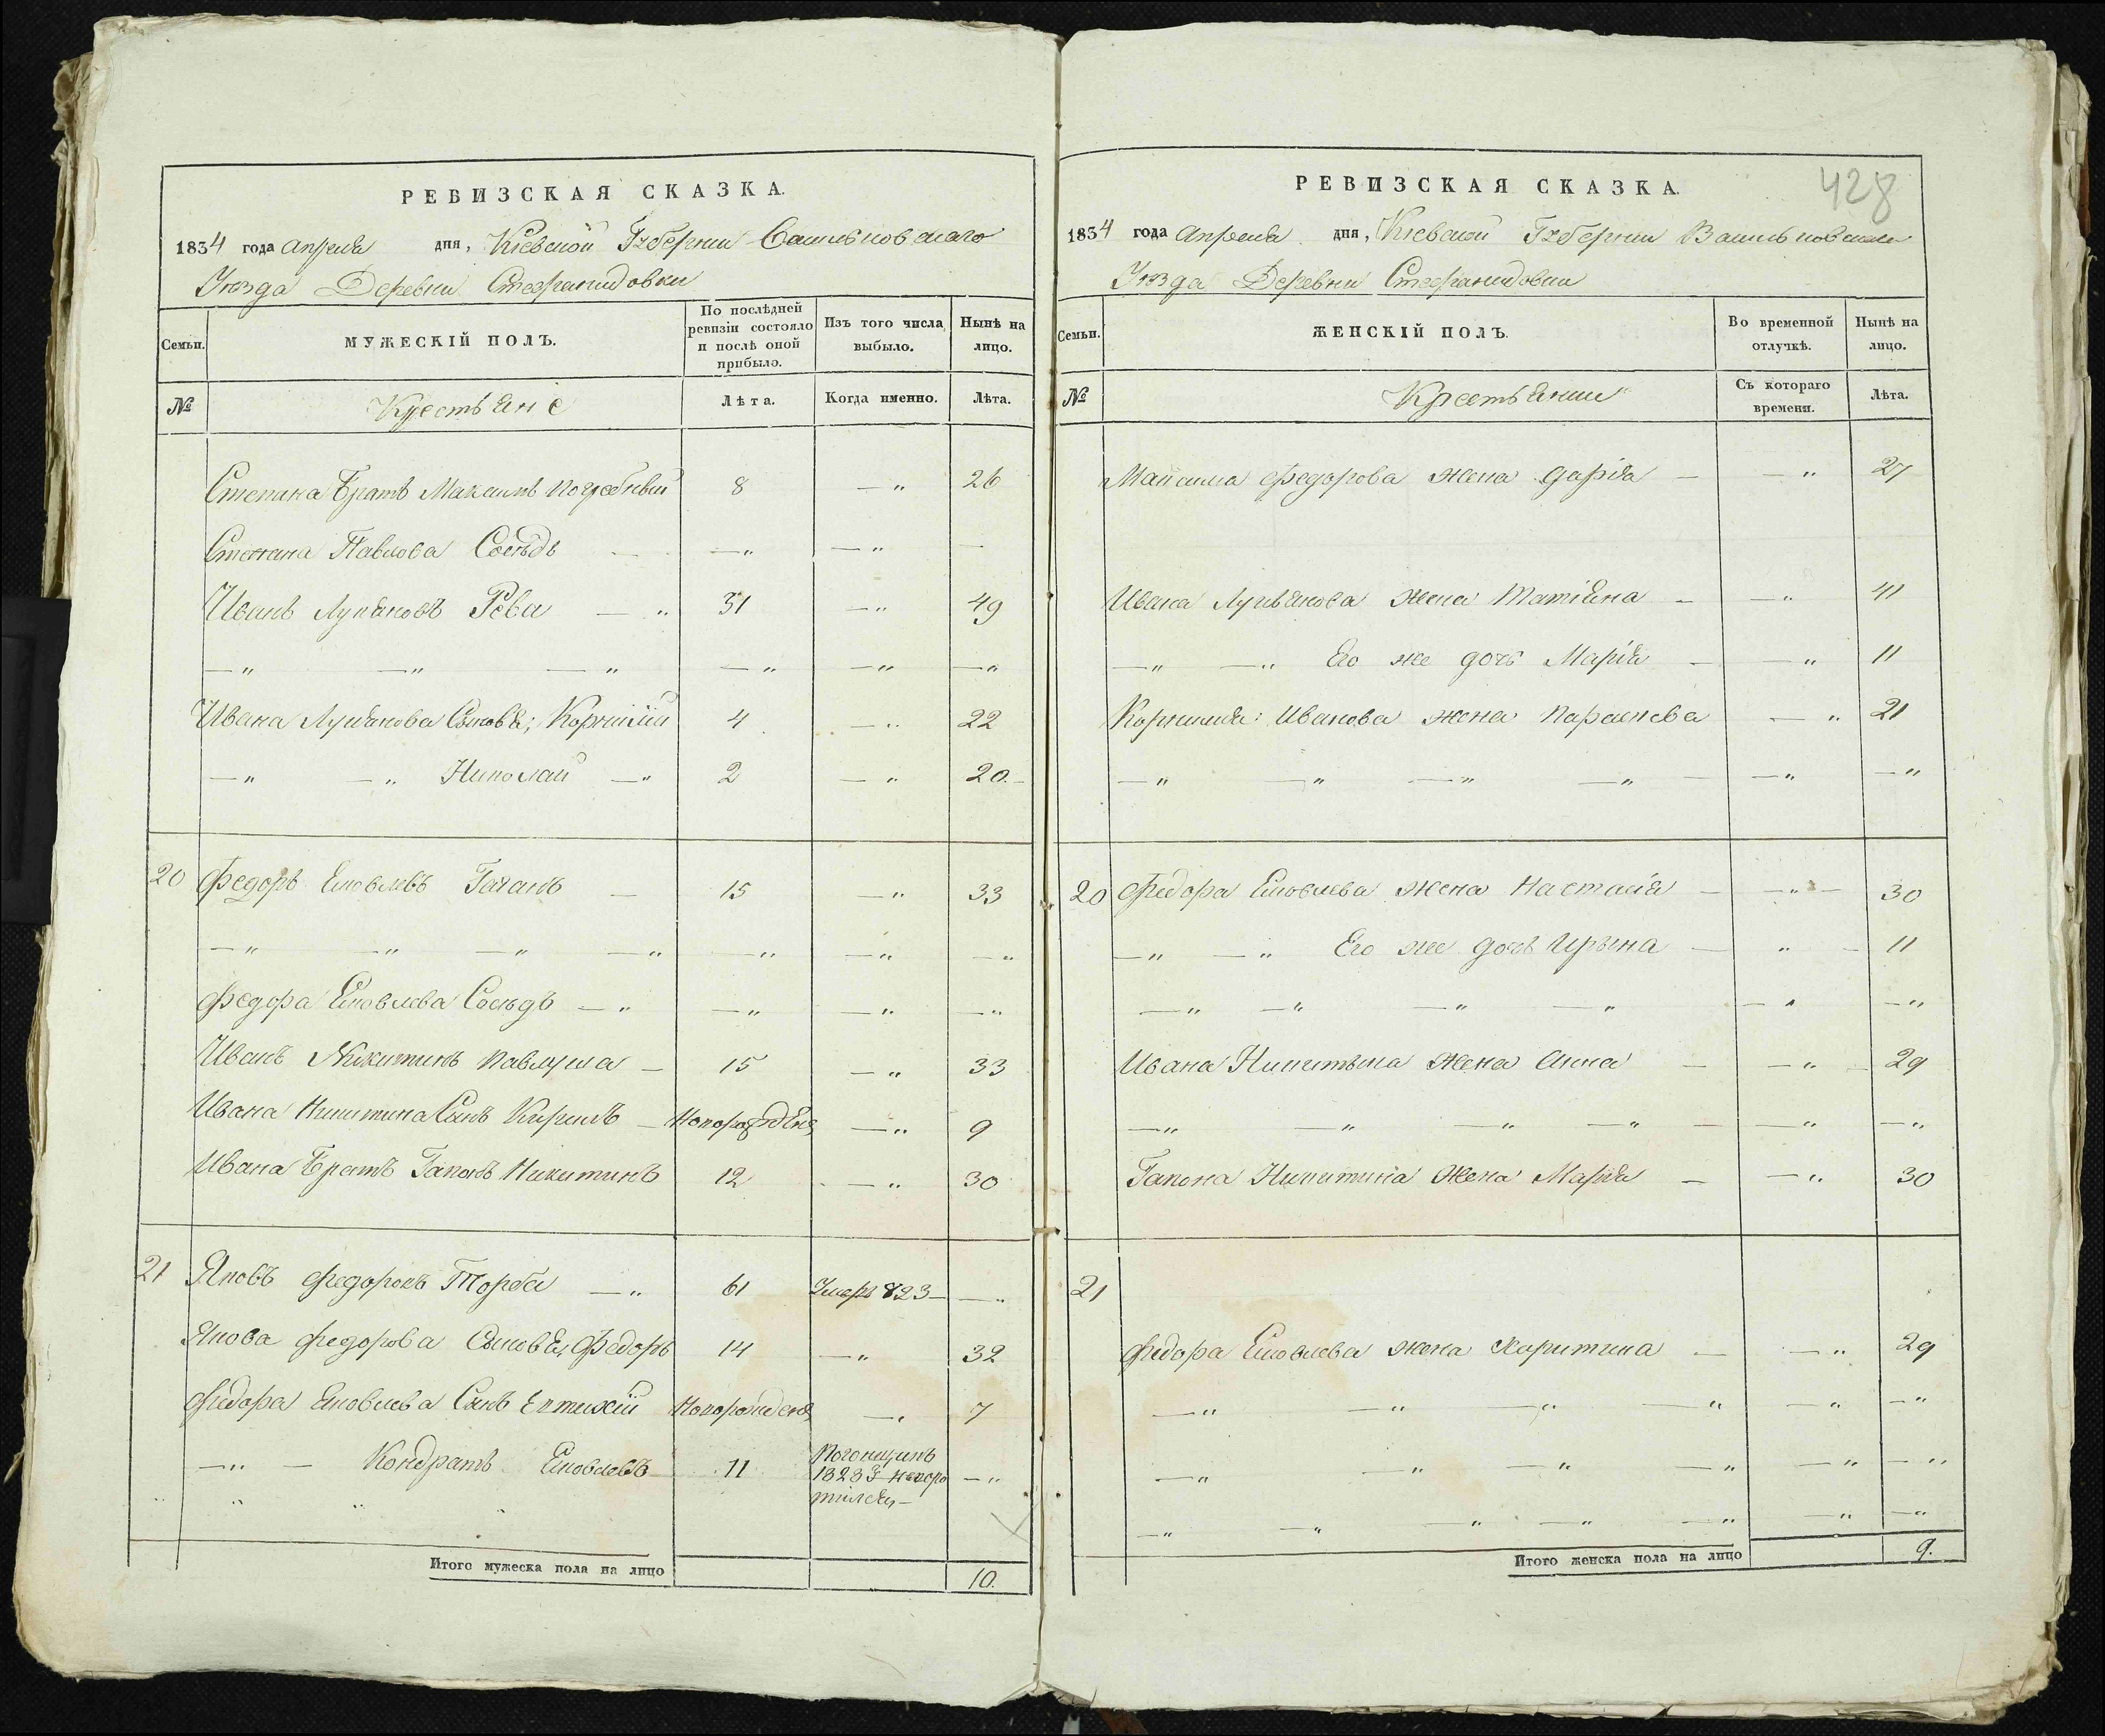 РЕВИЗСКАЯ СКАЗКА.
1834 года Апреля дня, Кіевской Губерніи Васильковскаго
Уезда Деревни Стефанидовки
Семьи. МУЖЕСКІЙ ПОЛЪ. По послѣдней ревизіи состояло и послѣ оной прибыло. Изъ того числа выбыло. Нынѣ на лицо.
№ Крестьяне Лѣта. Когда именно. Лѣта.
Степана Братъ Максимъ Погребный 8 — " 26
Степана Павлова Соседъ — — " — " —
Иванъ Лукяновъ Рева — " 31 — " 49
— " — " — " — " — " — "
Ивана Лукянова Сыновья; Корнилій 4 — " 22
— " — " Николай — " 2 — " 20.
20 Федоръ Яковлевъ Гачакъ — 15 — " 33
— " — " — " — " — " — " — "
Федора Яковлева Соседъ — " — " — " — "
Иванъ Никитинъ Павлуша — 15 — " 33
Ивана Никитина Сынъ Кирилъ — Новорожденъ — " 9
Ивана Братъ Гапонъ Никитинъ 12 — " 30
21 Яковъ Федоровъ Торба — " 61 Умеръ 823 — — "
Якова Федорова Сыновья Федоръ 14 — " 32
Федора Яковлева Сынъ Евтихій Новорожденъ — " 7
— " — Кондратъ Яковлевъ 11 — "
Итого мужеска пола на лицо 10.
428
РЕВИЗСКАЯ СКАЗКА.
1834 года Апреля дня, Кіевской Губерніи Васильковскаго
Уезда Деревни Стефанидовки
Семьи. ЖЕНСКІЙ ПОЛЪ. Во временной отлучкѣ. Нынѣ на лицо.
№ Крестьянки Съ котораго времени. Лѣта.
Максима Федорова жена Дарія — — " 27
Ивана Лукьянова жена Татіяна — — " 41
— " — " Его же дочь Марія — — " 11
Корнилія Иванова жена Параскева — " 21
— " — " — " — " — " — "
20 Федора Яковлева жена Настасія — — " — 30
— " — " Его же дочь Ирына — " — 11
— " — " — " — " — " — "
Ивана Никитына жена Анна — — " — 29
— " — " — " — " — — " — "
Гапона Никитина жена Марія — — " 30
21
Федора Яковлева жена Харитина — — " 29
— " — " — " — " — " — "
— " — " — " — " — " — "
— " — " — " — " — " — " — "
Итого женска пола на лицо 9.